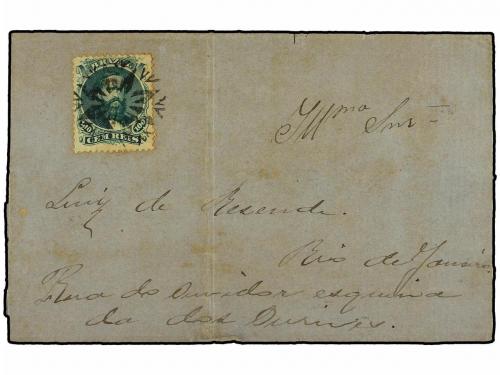 BRAZIL
100 CEM REIS 100
Illmo Snr
Luiz de Resende.
Rio de Janeiro
Rua do Ouvidor esquina
da dos Ourives.